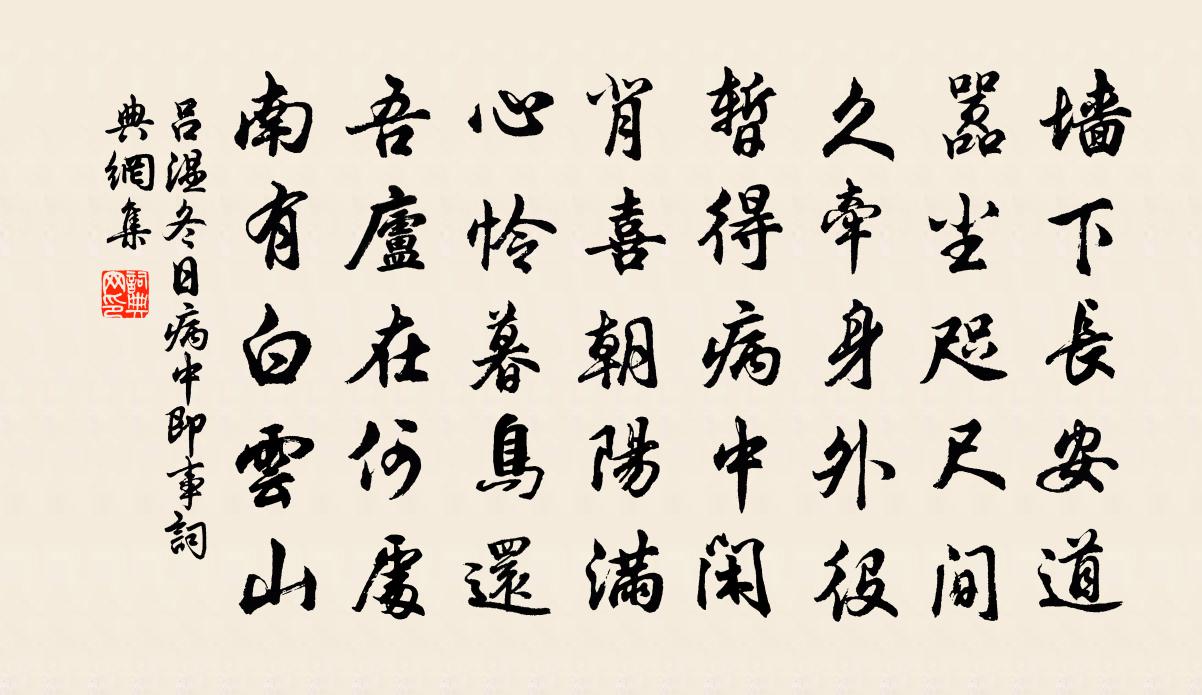 墙下長安道
嚣尘咫尺间
久牽身外役
暂得病中闲
背喜朝陽满
心怜暮鳥還
吾廬在何處
南有白雲山
呂温冬日病中即事詞
典網集
詞典網印